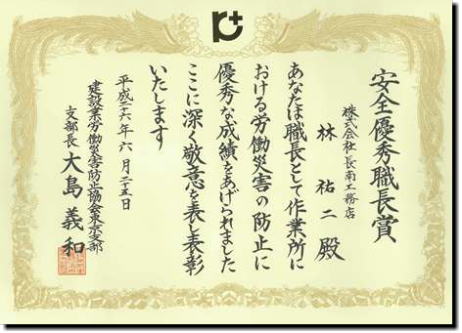 安全優秀職長賞
株式会社長南工務店
林祐二殿
あなたは職長として作業所に
おける労働災害の防止に
優秀な成績をあげられました
ここに深く敬意を表し表彰
いたします
平成二十六年六月二十五日
建設業労働災害防止協会東京支部
支部長大島義和